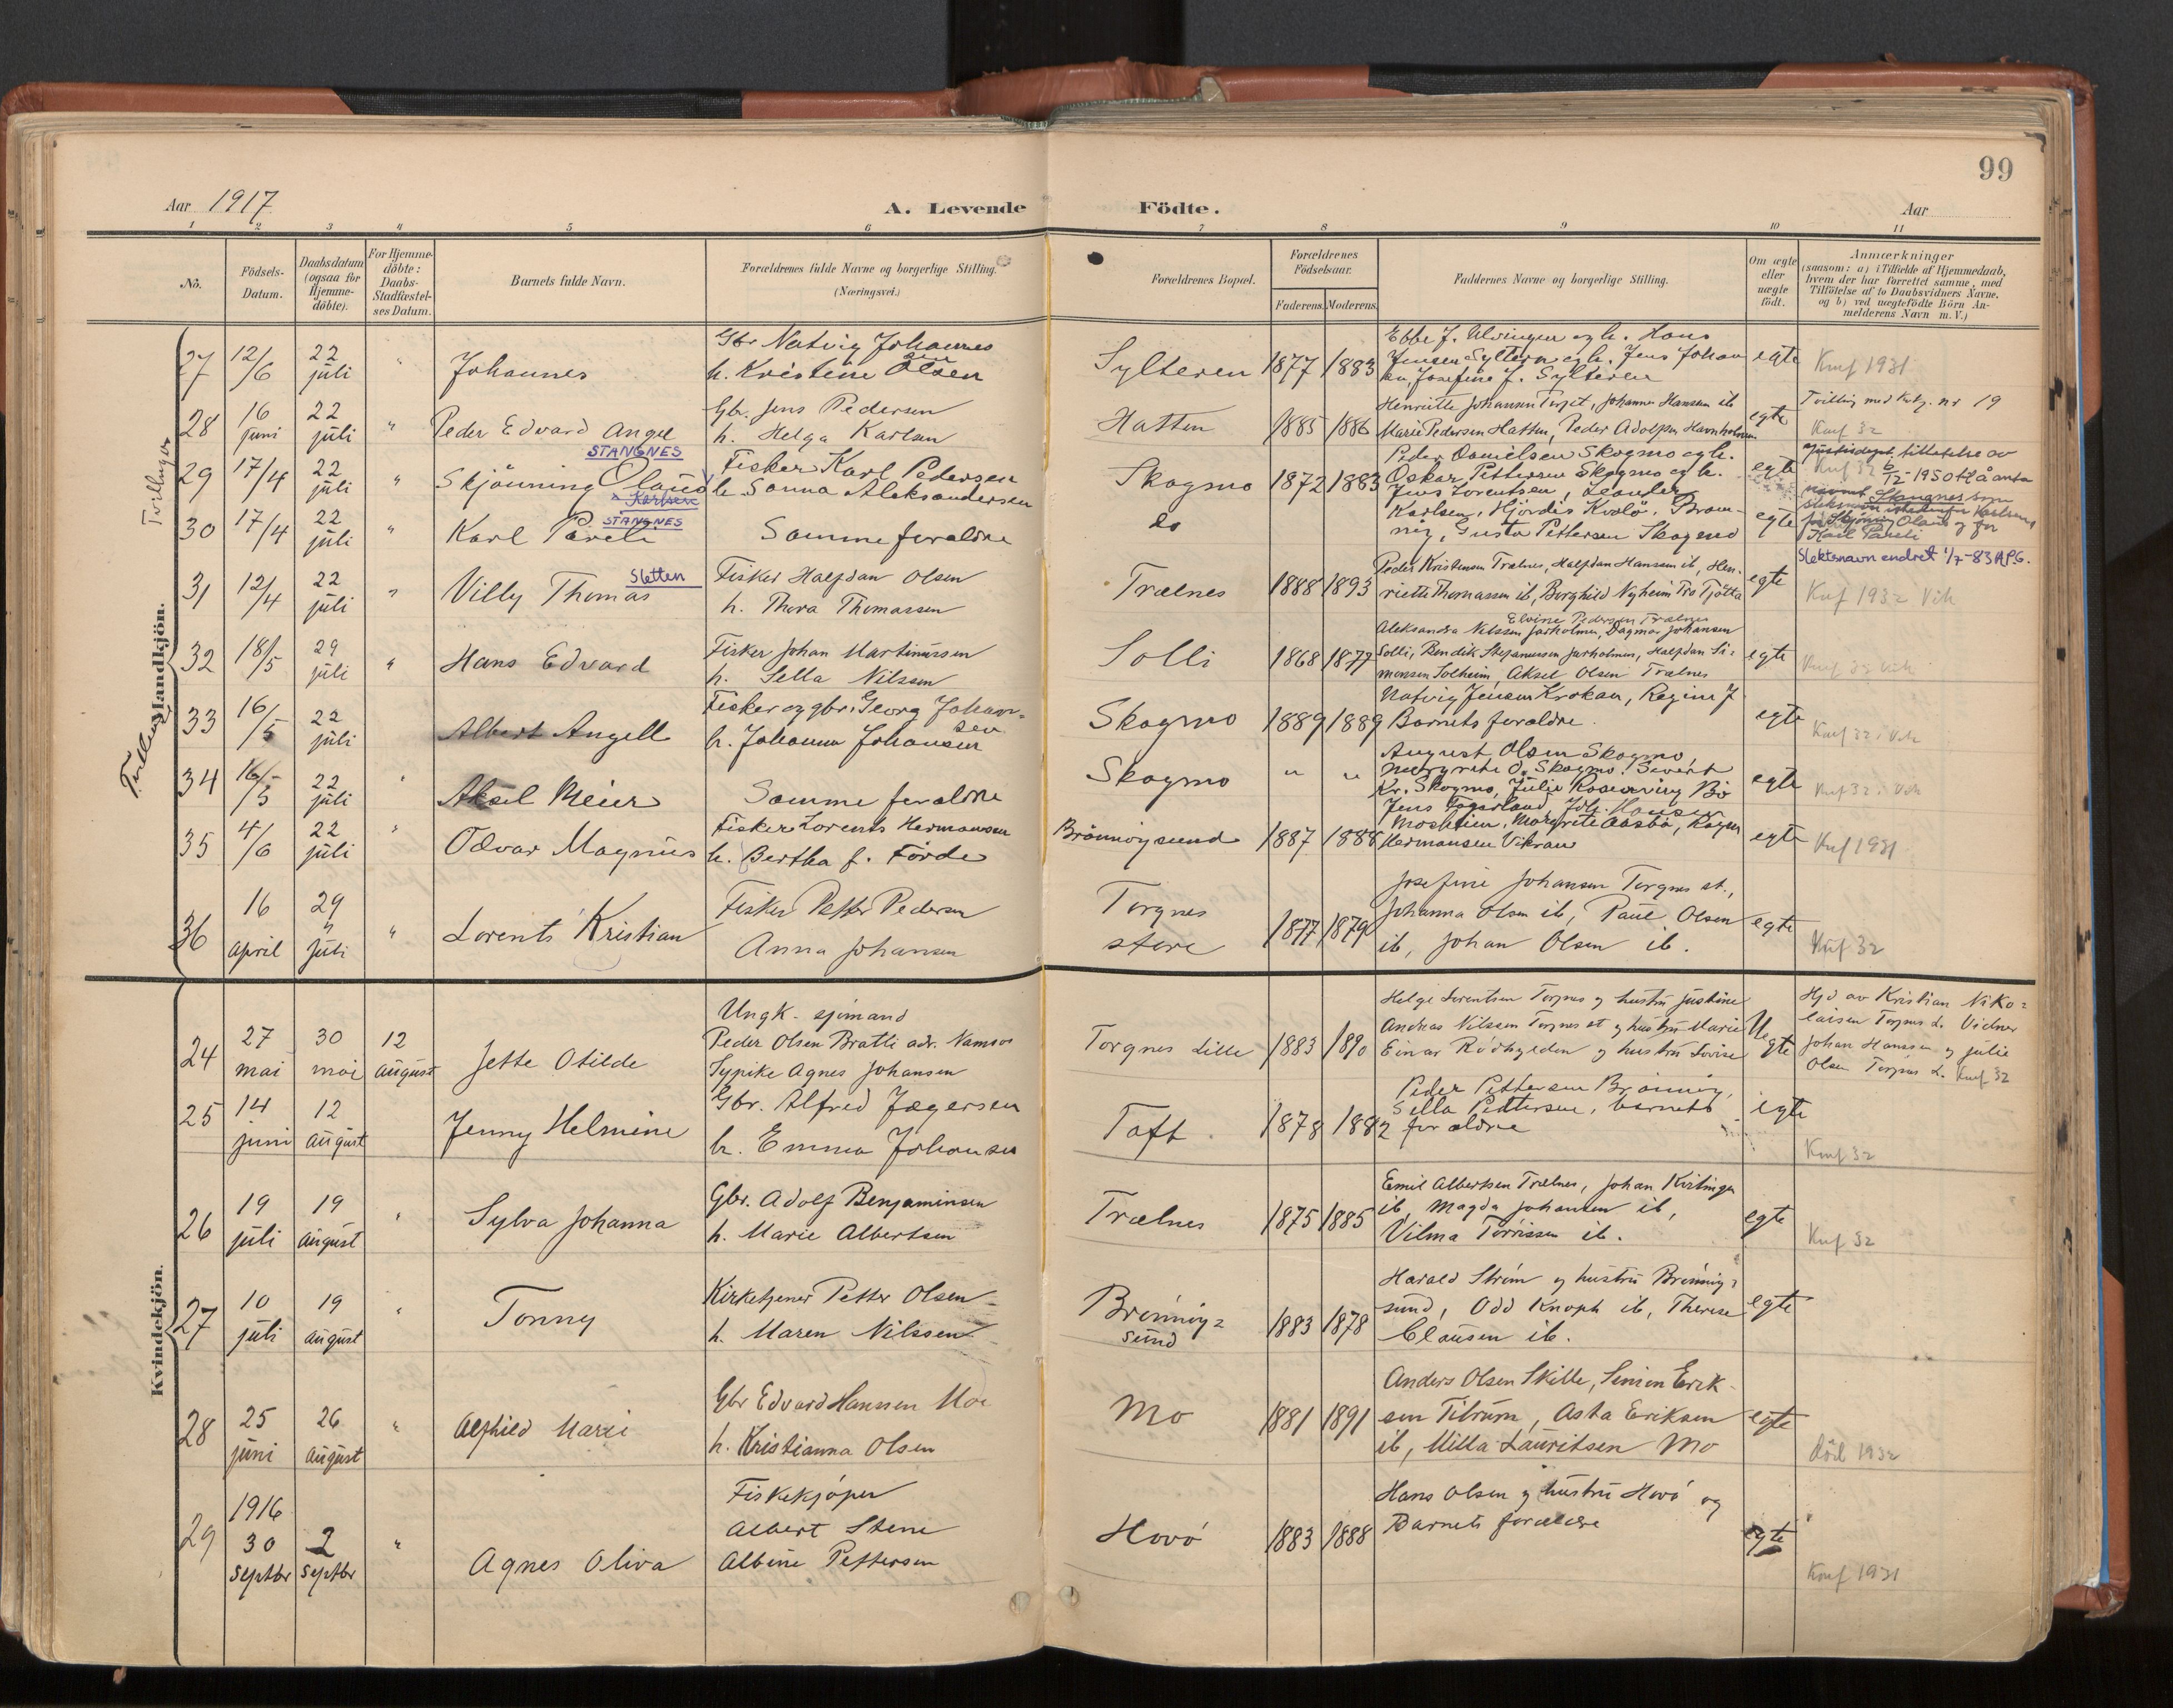 99
Aar 1917
A. Levende Födte.
Aar
1 2 3 4 5 6 7 8 9 10 11
No.
Födsels-Datum.
Daabsdatum (ogsaa for Hjemmedöbte).
For Hjemmedöbte: Daabs-Stadfæstelses Datum.
Barnets fulde Navn.
Forældrenes fulde Navne og borgerlige Stilling.
(Næringsvei.)
Forældrenes Bopæl.
Forældrenes Födselsaar.
Faderens. Moderens.
Faddernes Navne og borgerlige Stilling.
Om ægte eller uægte födt.
Anmærkninger
(saasom: a) i Tilfælde af Hjemmedaab, hvem der har forrettet samme, med Tilföielse af to Daabsvidners Navne, og b) ved uægtefödte Börn Anmelderens Navn m. V.)
Mandkjön.
Tvillinger
Tvillinger
27 12/6 22 juli " Johannes
Gbr Natvig Johannessen
h. Kristine Olsen
Sylteren 1877 1883
Jensen Sylteren og h. Jens Johan
Josefine J. Sylteren
egte Knf 1931
28 16 juni 22 juli " Peder Edvard Angel
Gbr. Jens Pedersen
h. Helga Karlsen
Hatten 1885 1886
Henriette Johansen Torget, Johannes Hanssen ib
Marie Pedersen Hatten, Peder Adolfsen Havnholmen
egte Tvilling med kvkj. nr 19
Knf 32
29 17/4 22 juli " Skjönning Olaus
STANGNES
Karlsen
Fisker Karl Pedersen
h Sanna Aleksandersen
Skogmo 1872 1883
Peder Danielsen Skogmo og h.
Oskar Pettersen Skogmo og h.
Jens Lorentsen, Leander
egte Justisdept. tillatelse av
Knf 32 6/12-1950 til å anta
navnet Stangnes som
30 17/4 22 juli " Karl Pareli
STANGNES
Samme foræladre
do
Karlsen, Hjördis Kvalö, Brönnöy, Gusta Pettersen Skogmo
egte
for Skjöning Olaus og for
Karl Pareli
31 12/4 22 juli " Villy Thomas
Sletten
Fisker Halfdan Olsen
h. Thora Thomassen
Trælnes 1888 1893
Peder Kristensen Trælnes, Halfdan Hanssen ib, Hen-
riette Thomassen ib, Borghild Nyheim Tro Tjötta
egte Slektsnavn endret 1/7-83 APG.
Knf 1932 Vik
32 18/5 29 juli " Hans Edvard
Fisker Johan Martinussen
h. Sella Nilssen
Solli 1868 1877
Elvine Pedersen Trælnes
Aleksandra Nilssen Jarholmen, Dagmar Johansen
Solli, Bendik Stefanussen Jarholmen, Halfdan Si-
monsen Solheim, Aksel Olsen Trælnes
egte Knf 32 Vik
33 16/5 22 juli Albert Angell
Fisker og gbr. Georg Johan-
sen
h. Johanna Johansen
Skogmo 1889 1889
Natvig Jensen Krokan, Regine J
Barnets forældre.
egte Knf 32 i Vik
34 16/5 22 juli " Aksel Meier
Samme forældre
Skogmo " "
August Olsen Skogmo,
O. Skogmo. Sivert
Kr. Skogmo, Julie Rosenvinge Bö
egte Knf 32 i Vik
35 4/6 22 juli " Odvar Magnus
Fisker Lorents Hermansen
h. Bertha f. Förde
Brönnöysund 1887 1888
Mosheim, Margrete Aasbö,
Hermansen Vikran
egte Knf 1931
36 16 april 29 juli " Lorents Kristian
Fisker Petter Pedersen
Anna Johansen
Torgnes
store 1877 1879
Josefine Johansen Torgnes st.,
Johanna Olsen ib, Paul Olsen
ib, Johan Olsen ib.
egte Knf 32
Kvindekjön.
24 27 mai 30 mai 12 august Jette Otilde
Ungk. sjömand
Peder Olsen Bratli adr. Namsos
Sypike Agnes Johansen
Torgnes Lille 1883 1890
Helge Lorentsen Torgnes og hustru Justine
Andreas Nilssen Torgnes st og hustru Marie
Einar Rödhylden og hustru Lovise
Uegte
Hjd av Kristian Niko-
laisen Torgnes L. Vidner
Johan Hanssen og Julie
Olsen Torgnes L. Knf 32
25 14 juni 12 august Jenny Helmine
Gbr. Alfred Jægersen
h. Emma Johansen
Toft 1878 1882
Peder Pettersen Brönnöy,
Sella Pettersen, barnets
forældre
egte Knf 32
26 19 juli 19 august " Sylva Johanna
Gbr. Adolf Benjaminsen
h. Marie Albertsen
Trælnes 1875 1885
Emil Albertsen Trælnes, Johan Kvitingen
ib, Magda Johansen ib,
Vilma Törrissen ib.
egte Knf 32
27 10 juli 19 august " Tonny
Kirketjener Petter Olsen
h. Maren Nilssen
Brönnöy-
sund 1883 1878
Harald Ström og hustru Brönnöy-
sund, Odd Knoph ib, Therese
Clausen ib.
egte
28 25 juni 26 august " Alfhild Marie
Gbr Edvard Hanssen Moe
h. Kristianna Olsen
Mo 1881 1891
Anders Olsen Skille, Simon Erik-
sen Tilrum, Asta Eriksen
ib, Milla Lauritsen Mo
egte död 1932
29 1916 30 septbr 2 septbr " Agnes Oliva
Fiskekjöper
Albert Stene
Albine Pettersen
Hovö 1883 1888
Hans Olsen og hustru Hovö og
Barnets forældre
egte Konf 1931